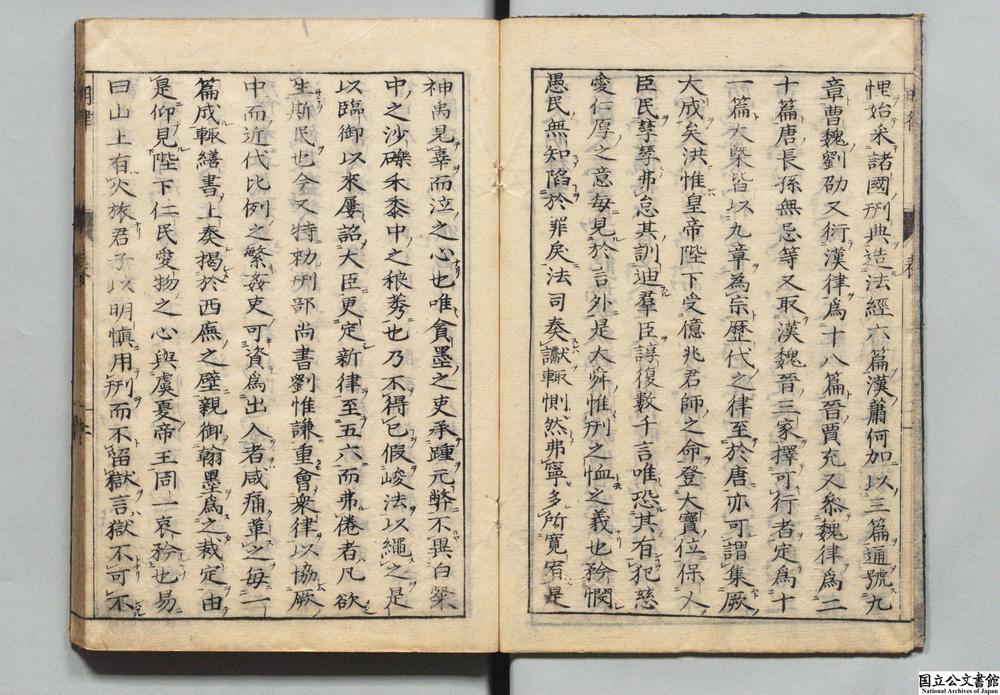 悝始采諸國刑典造法經六篇漢蕭何加以三篇通號九
章曹魏劉劭又衍漢律爲十八篇晉賈充又叅魏律爲二
十篇唐長孫無忌等又取漢魏晉三家擇可行者定爲十
一篇大槩皆以九章為宗歷代之律至於唐亦可謂集厥
大成矣洪惟皇帝陛下受億兆君師之命登大寶位保乂
臣民孳孳弗怠其訓迪羣臣諄復數千言唯恐其有犯慈
愛仁厚之意每見於言外是大舜惟刑之恤之義也矜憫
愚民無知陷於罪戾法司奏讞輒惻然弗寧多所寬宥是
神禹見辜而泣之心也唯貪墨之吏承踵元弊不異白粲
中之沙礫禾黍中之稂莠也乃不得已假峻法以繩之是
以臨御以來屢詔大臣更定新律至五六而弗倦者凡欲
生斯民也今又特勅刑部尚書劉惟謙重會衆律以協厥
中而近代比例之繁姦吏可資爲出入者咸痛革之每一
篇成輒繕書上奏揭於西廡之壁親御翰墨爲之裁定由
是仰見陛下仁民愛物之心與虞夏帝王同一哀矜也易
曰山上有火旅君子以明愼用刑而不留獄言獄不可不
国立公文書館
National Archives of Japan